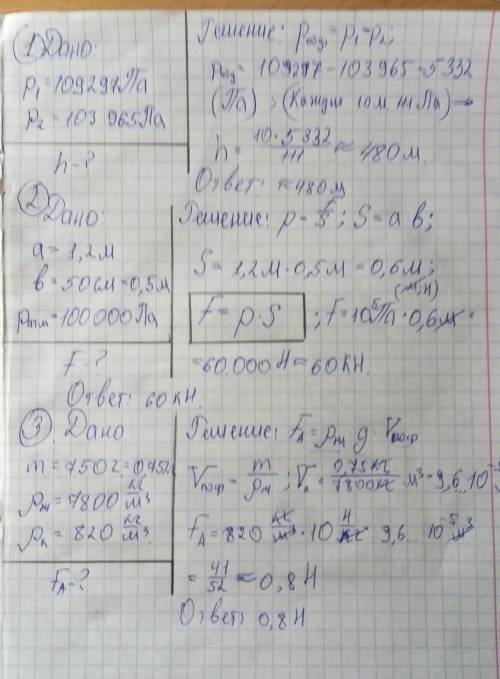 ① Дано:
p₁ = 109297 Па
p₂ = 103965 Па
h - ?
Решение: pвозд = p₁ - p₂;
pвозд = 109297 - 103965 = 5332
(Па); (Каждые 10м 111 Па) →
h = 10 · 5332 / 111 ≈ 480 м.
Ответ: ≈ 480 м
② Дано:
a = 1,2 м
в = 50 см = 0,5 м
pатм = 100000 Па
F - ?
Решение: p = F/S; S = a в;
S = 1,2 м · 0,5 м = 0,6 м;
F = p · S ; F = 10⁵ Па · 0,6 м² =
= 60.000 Н = 60 кН.
Ответ: 60 кН.
③ Дано
m = 750 г = 0,75 кг
ρт = 7800 кг/м³
ρж = 820 кг/м³
Fₐ - ?
Решение: Fₐ = ρж g · Vпогр
Vпогр = m/ρт ; Vп = 0,75 кг / 7800 кг м³ = 9,6 · 10⁻⁵
Fₐ = 820 кг/м³ · 10 Н/кг 9,6 . 10⁻⁵ м³
= 41/52 ≈ 0,8 Н
Ответ: 0,8 Н